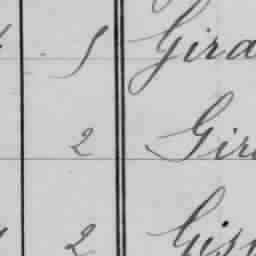 1 Gira
2 Gir
2 Gis